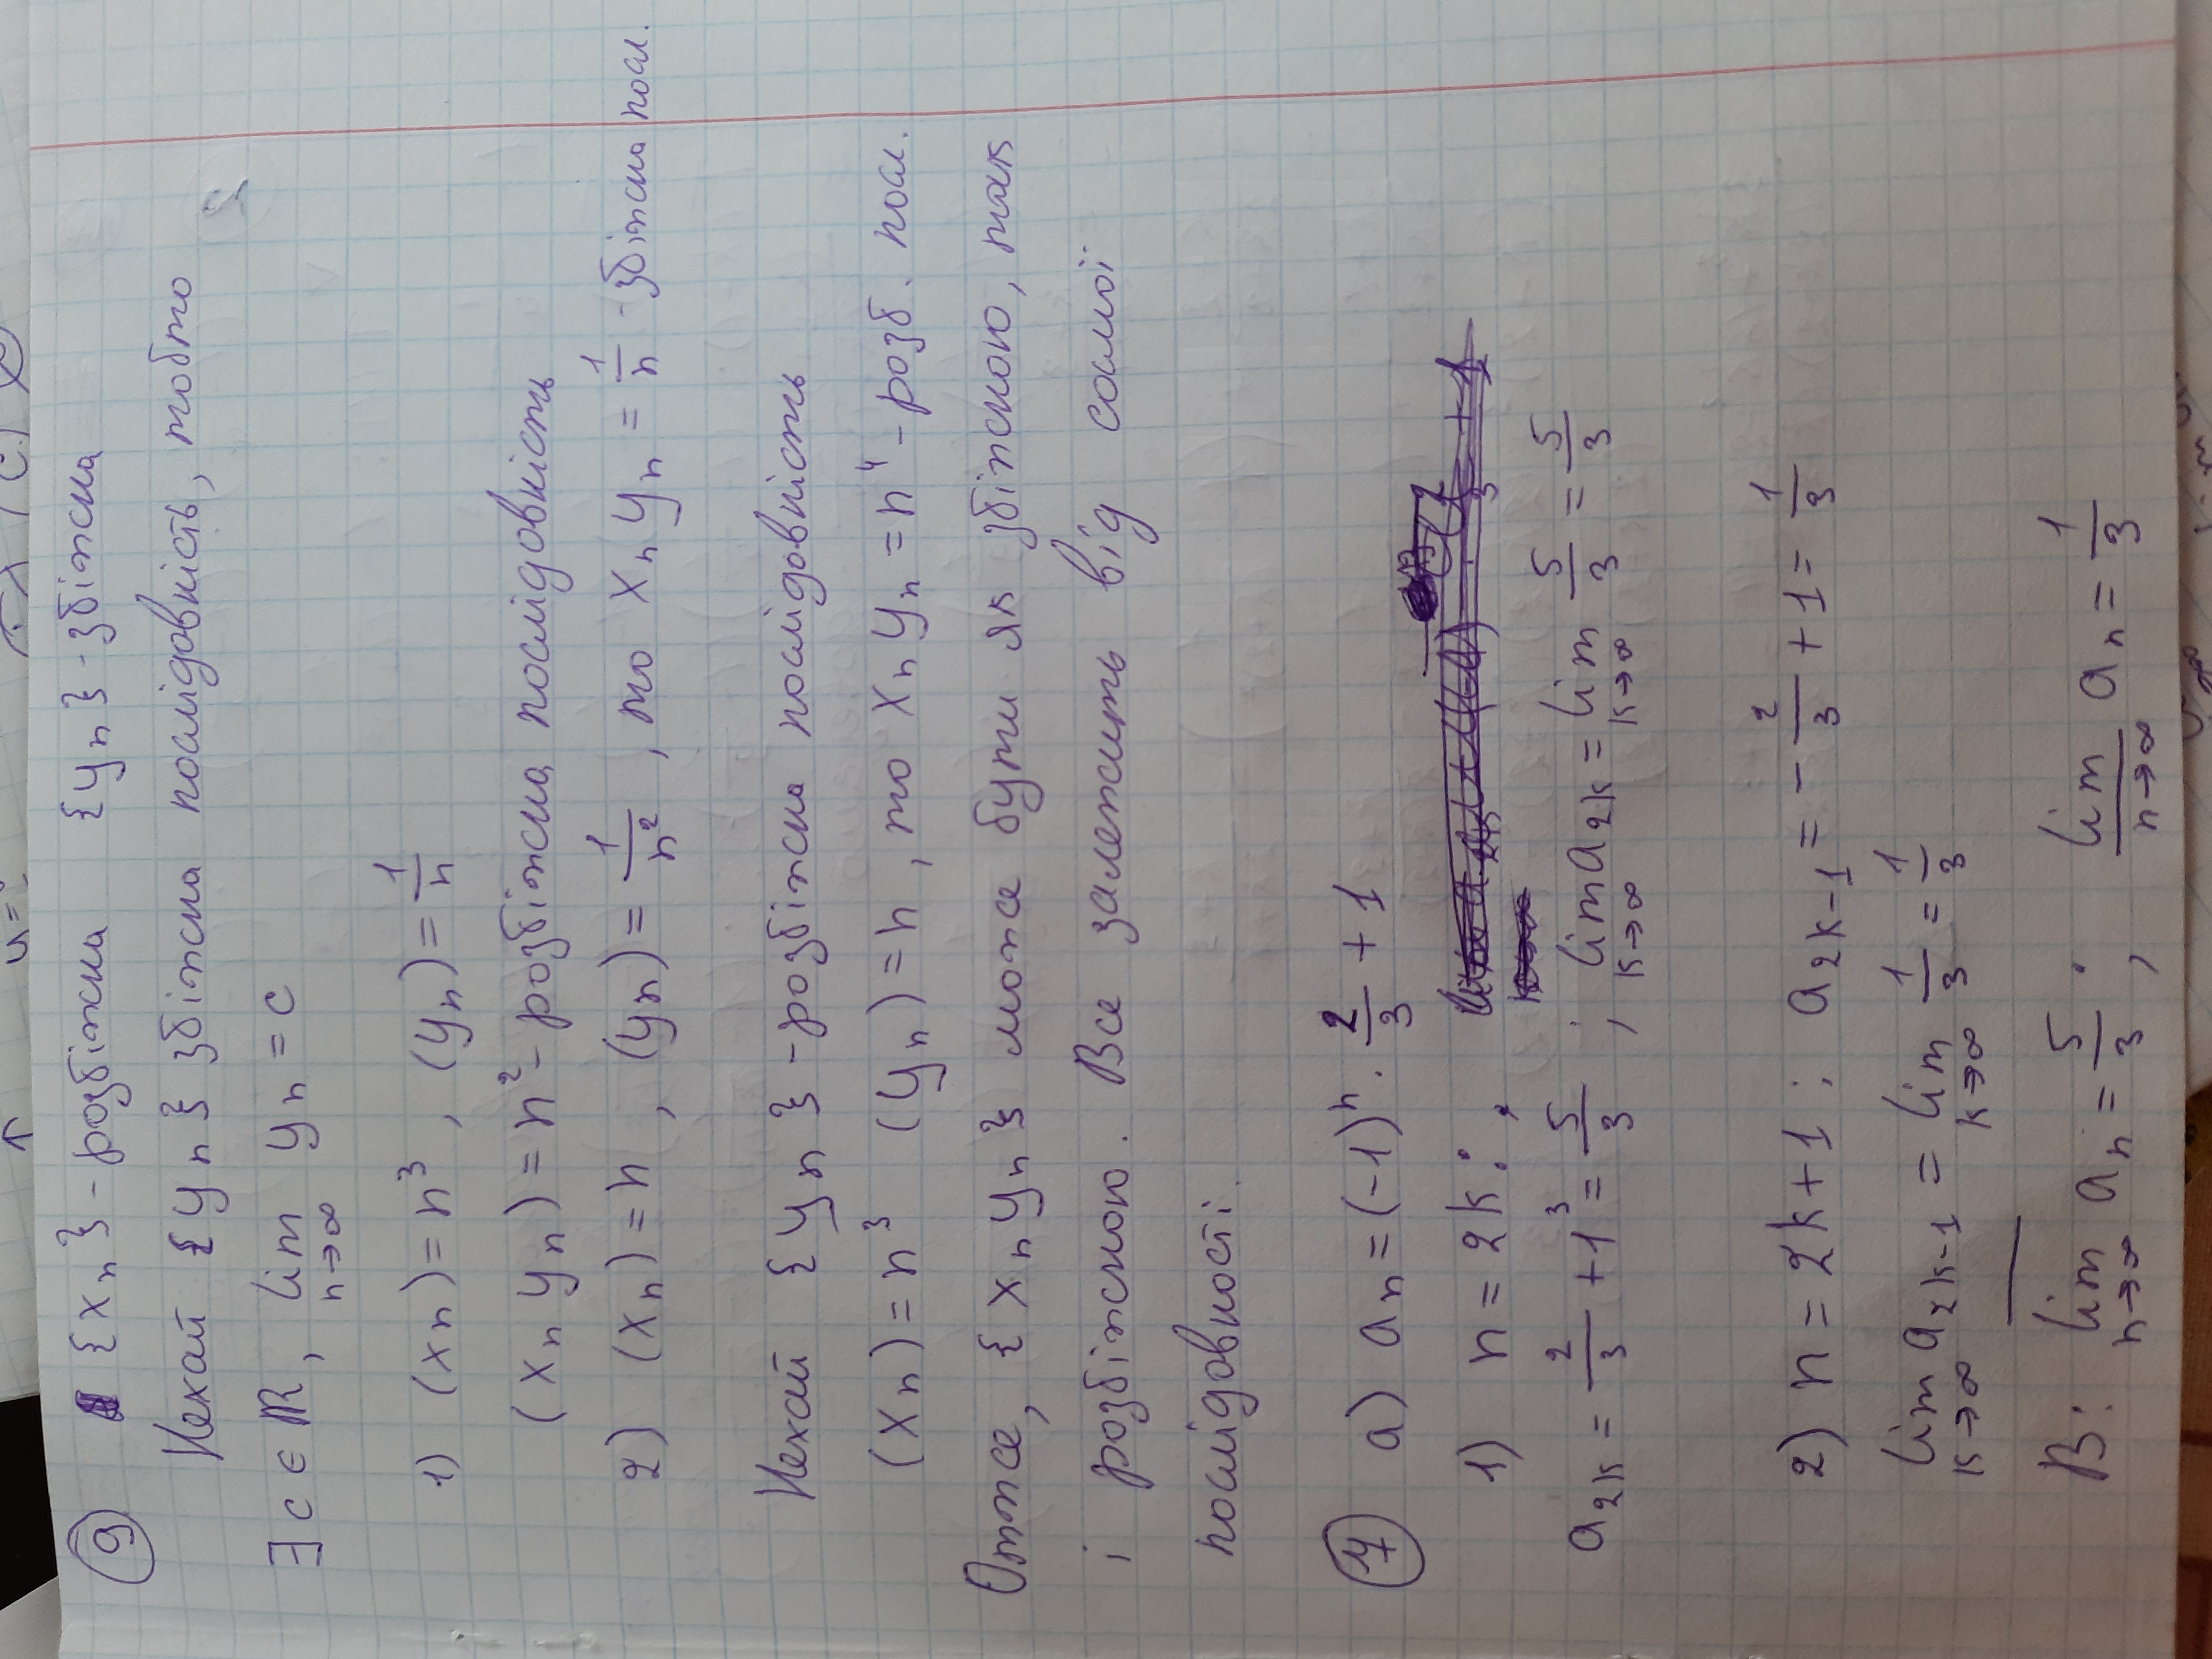 9 {xₙ} - розбіжна {yₙ} - збіжна
Нехай {yₙ} збіжна послідовність, тобто
∃ c ∈ ℝ, lim yₙ = c
n→∞
1) (xₙ) = n³, (yₙ) = 1/n
(xₙ yₙ) = n² - розбіжна послідовність
2) (xₙ) = n, (yₙ) = 1/n², то xₙ yₙ = 1/n - збіжна посл.
Нехай {yₙ} - розбіжна послідовність
(xₙ) = n³ (yₙ) = n, то xₙ yₙ = n⁴ - розб. посл.
Отже, {xₙ yₙ} може бути як збіжною, так
і розбіжною. Все залежить від самої
послідовності.
7 а) aₙ = (-1)ⁿ · 2/3 + 1
1) n = 2k :
a₂ₖ = 2/3 + 1³ = 5/3 ; lim a₂ₖ = lim 5/3 = 5/3
k→∞ k→∞
2) n = 2k+1 ; a₂ₖ₋₁ = - 2/3 + 1 = 1/3
lim a₂ₖ₋₁ = lim 1/3 = 1/3
k→∞ k→∞
В: l̅i̅m̅ aₙ = 5/3 ; l̲i̲m̲ aₙ = 1/3
n→∞ n→∞